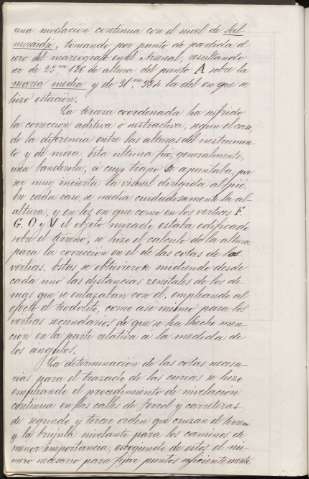 una nivelación continua con el nivel de Sal
moiraghi, tomando por punto de partida el
cero de mareógrafo en el Arsenal, resultando
de 25 m 186 de altura del punto A sobre la
marea media y de 31 m 984 la del en que se
hizo estación.
La tercera coordenada ha sufrido
la corrección aditiva o sustractiva, según el caso
de la diferencia entre las alturas del instrumen
to y de mira. Esta última fué, generalmente,
una banderola, á cuyo trapo se apuntaba, pe
ro muy incierta la visual dirigida al pié
En cada caso se medía cuidadosamente la al-
altura, y en los en que como en los vértices F
G, O y V el objeto mirado estaba edificado
sobre el terreno, se hizo el cálculo de la altura
para la corrección en el de las cotas de los
vértices. Estas se obtuvieron midiendo desde
cada uno las distancias zenitales de los de-
mas que se enlazaban con él, empleando al
efecto el teodolito, como así mismo para los
vértices secundarios de que se ha hecho men-
ción en la parte relativa á la medida de
los ángulos.
La determinación de las cotas necesa-
rias para el trazado de las curvas se hizo
empleando el procedimiento de nivelación
continua en las calles de Ferrol y carreteras
de segundo y tercer orden que cruzan el terreno
y la brújula nivelante para los caminos de
menor importancia, escogiendo de estos el nú-
mero necesario para fijar puntos suficientemente